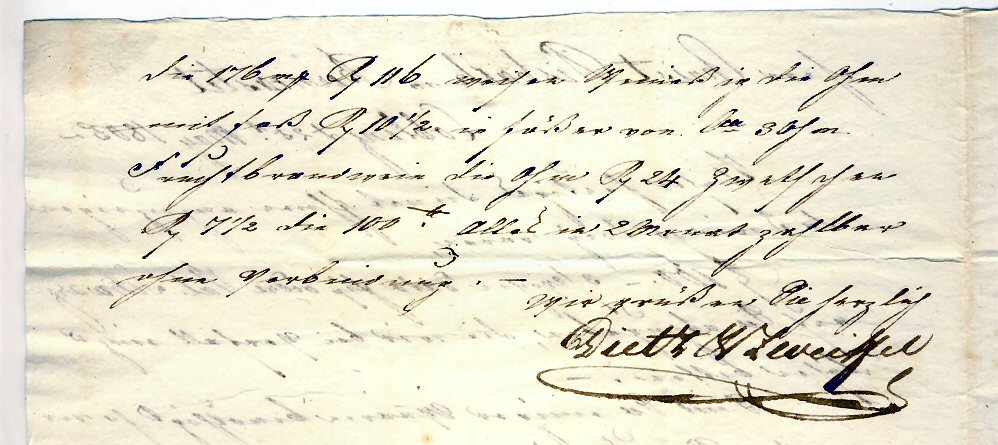 die 176 mg R 116 weiser Weinessig die Ohm
mit Faß R 10 1/2 in Fäßer von Ca 3 Ohm.
Fruchtbrandwein die Ohm R 24 Zwetschen
R 7 1/2 die 100 ℔ Alles in 2 Monat zahlbar
ohne Verbindung. –
Wir grüßen Sie herzlich
Dietz & Zweiffel